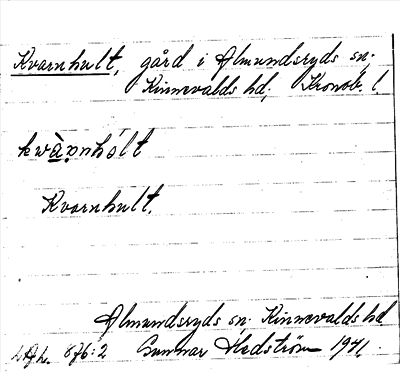 Kvarnhult, gård i Almundsryds sn.
Kinnevalds hd, Kronob. l.
kwàṛnhòlt
Kvarnhult.
Almundsryds sn. Kinnevalds hd.
876:2 Gunnar Hedström 1941.